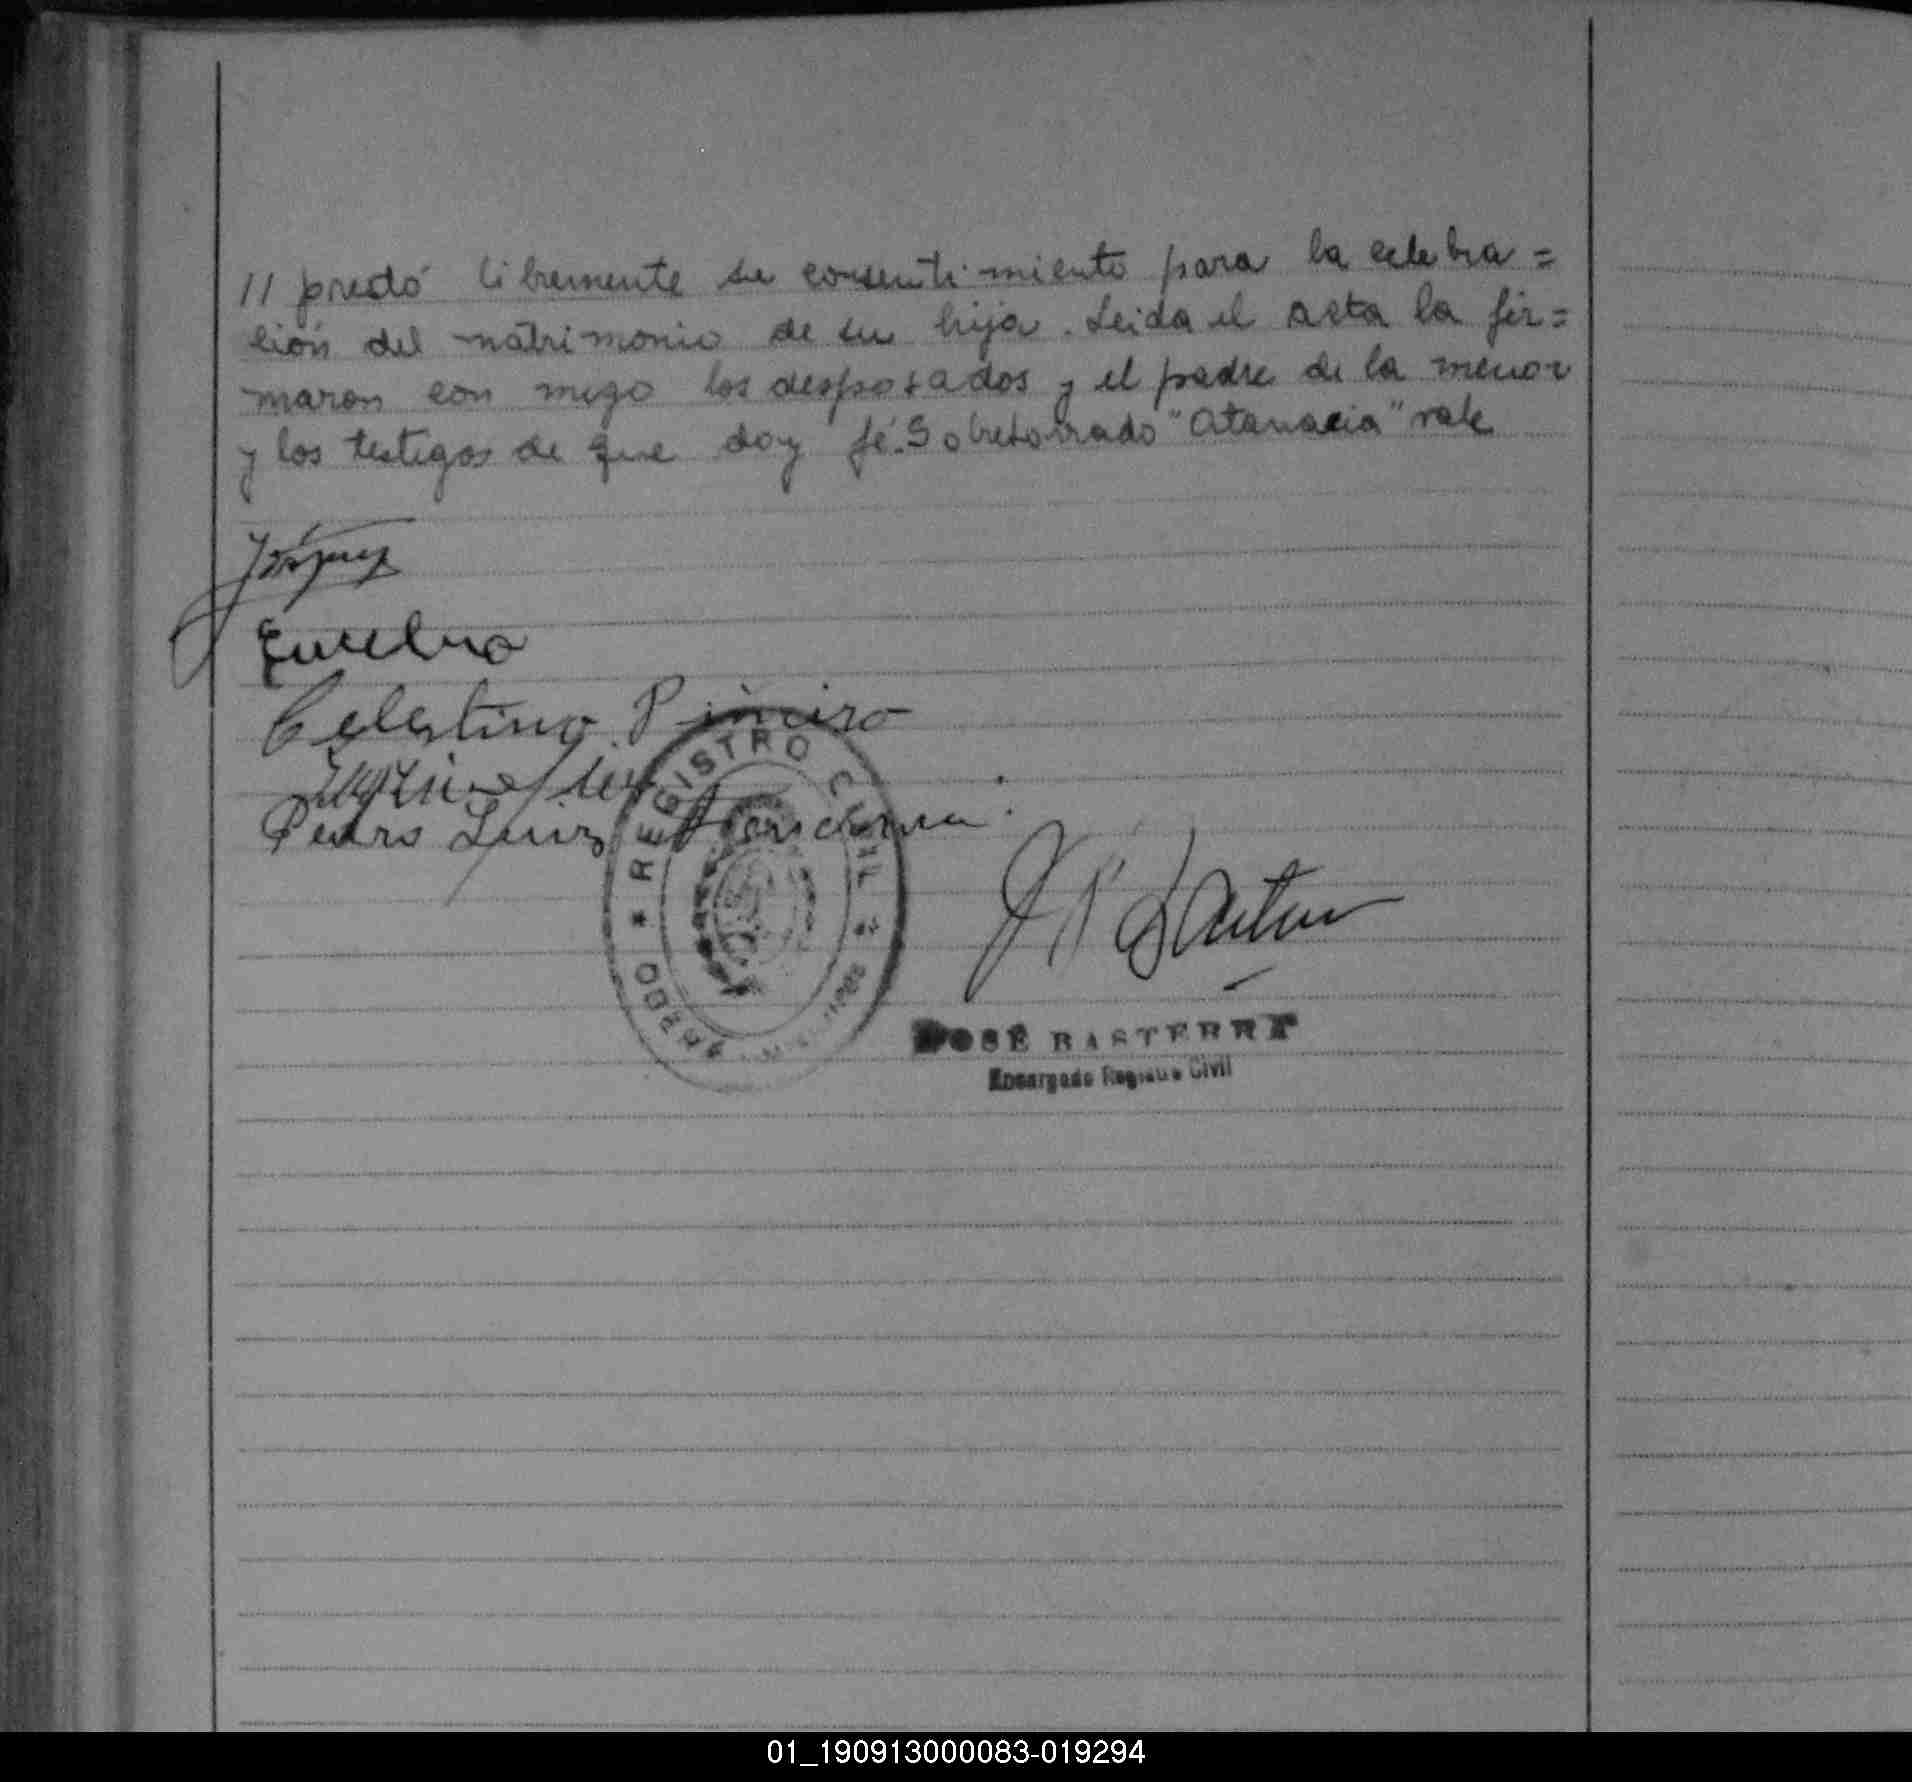 // prestó libremente su consentimiento para la celebra=
ción del matrimonio de su hija. Leida el acta la fir=
maron con migo los desposados y el padre de la menor
y los testigos de que doy fé. Sobreborrado "Atanacia" vale
Celestino Piñeiro
Pedro Luiz
REGISTRO CIVIL
JOSÉ BASTERRA
Encargado Registro Civil
01_190913000083-019294